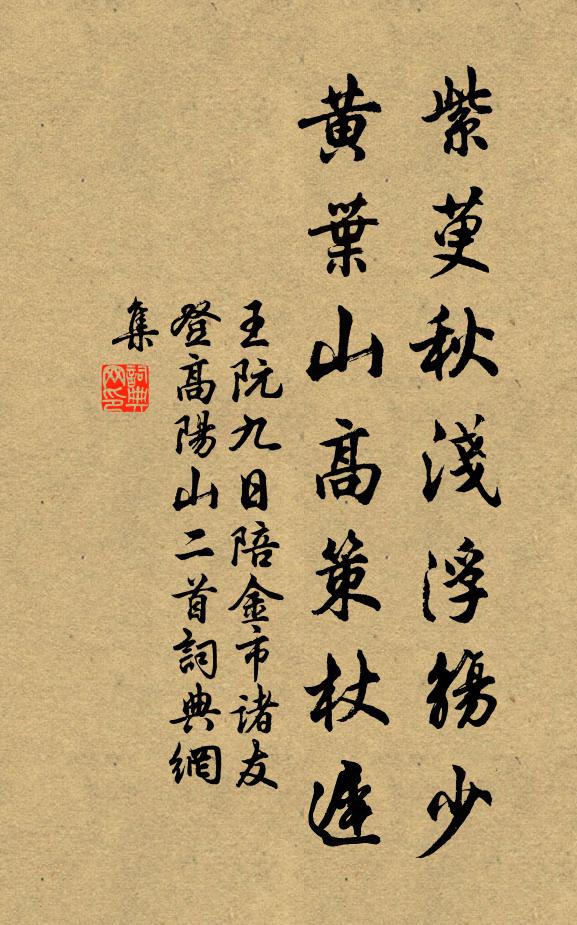 紫萸秋淺浮觴少
黃葉山高策杖遲
王阮九日陪金市諸友
登高陽山二首詞典網
集
詞典網印